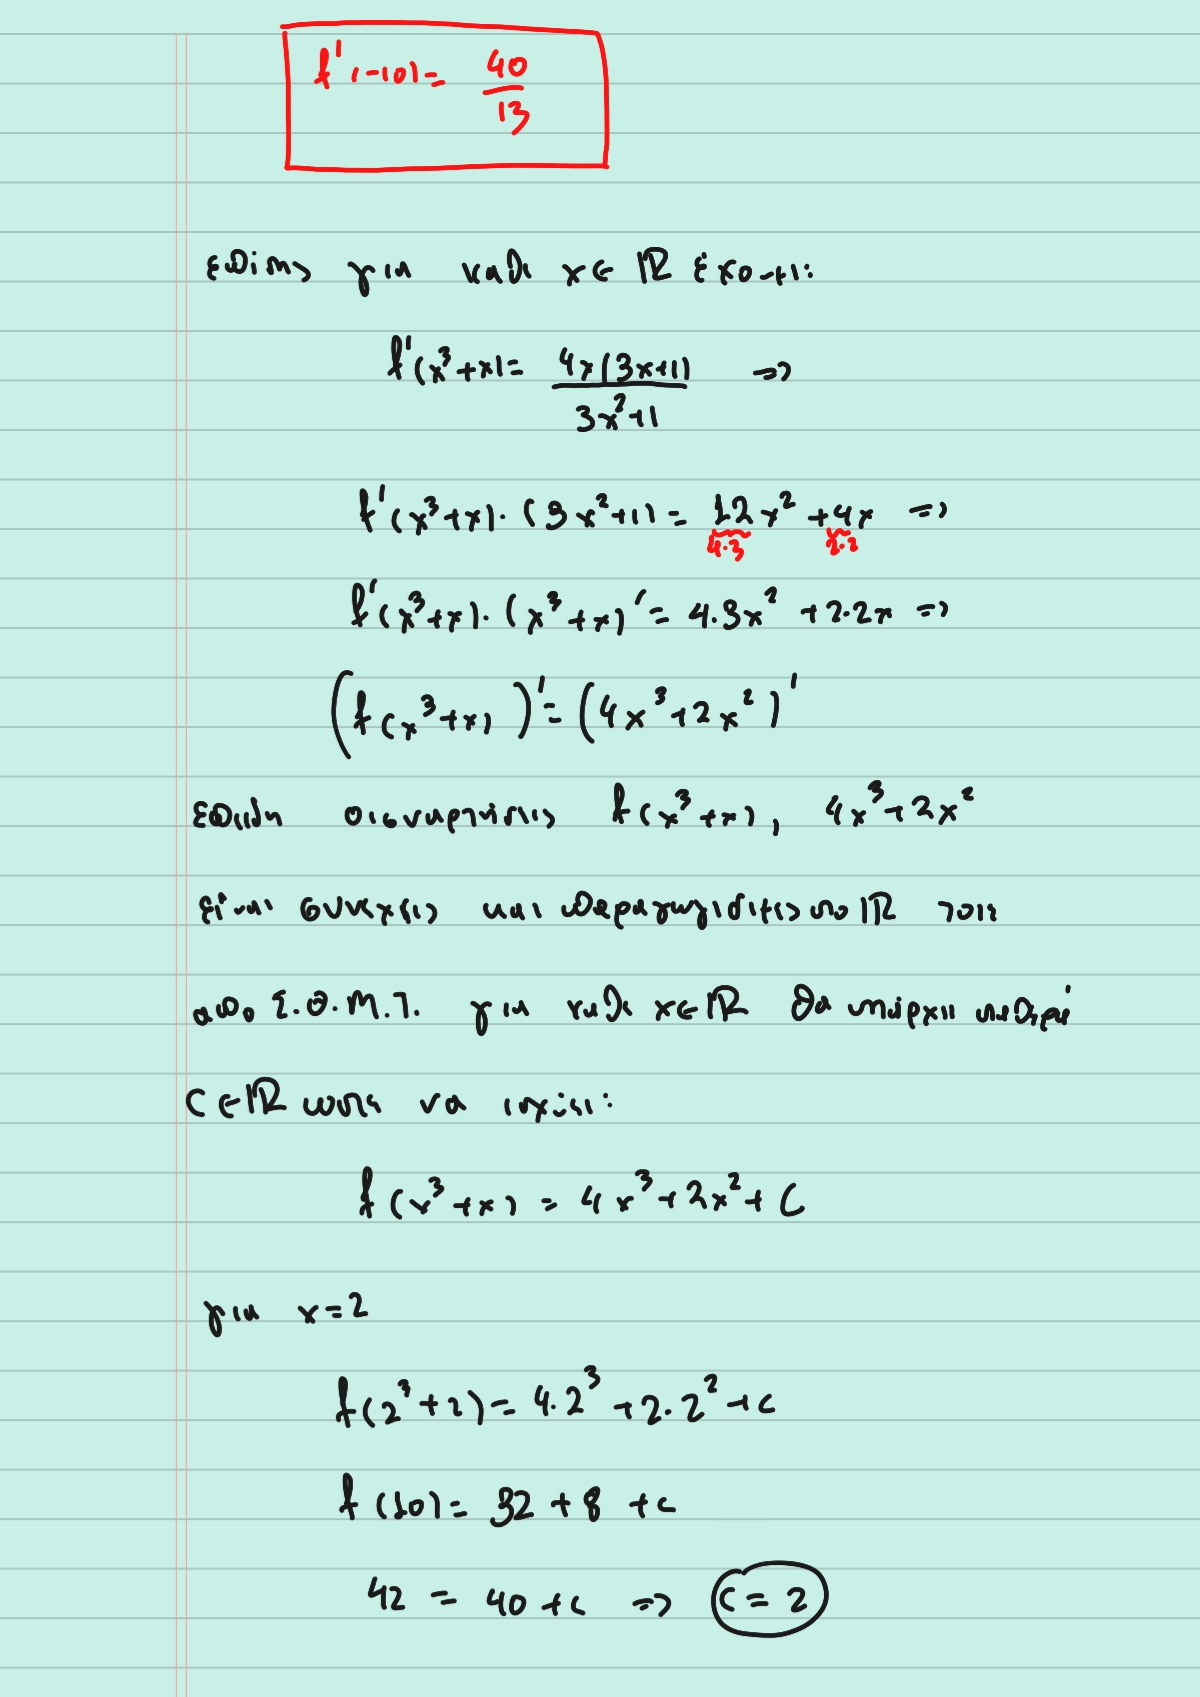 f'(-10) = 40/13
επίσης για κάθε x∈ℝ έχουμε:
f'(x³+x) = 4x(3x+1)/3x²+1 ⇒
f'(x³+x)·(3x²+1) = 12x² + 4x ⇒
4·3 2·2
f'(x³+x)·(x³+x)' = 4·3x² + 2·2x ⇒
(f(x³+x))' = (4x³+2x²)'
επειδή οι συναρτήσεις f(x³+x), 4x³+2x²
είναι συνεχείς και παραγωγίσιμες στο ℝ τότε
από Σ.Θ.Μ.Τ. για κάθε x∈ℝ θα υπάρχει σταθερά
C∈ℝ ώστε να ισχύει:
f(x³+x) = 4x³+2x²+C
για x=2
f(2³+2) = 4·2³+2·2²+c
f(10) = 32+8+c
42 = 40+c ⇒ c=2